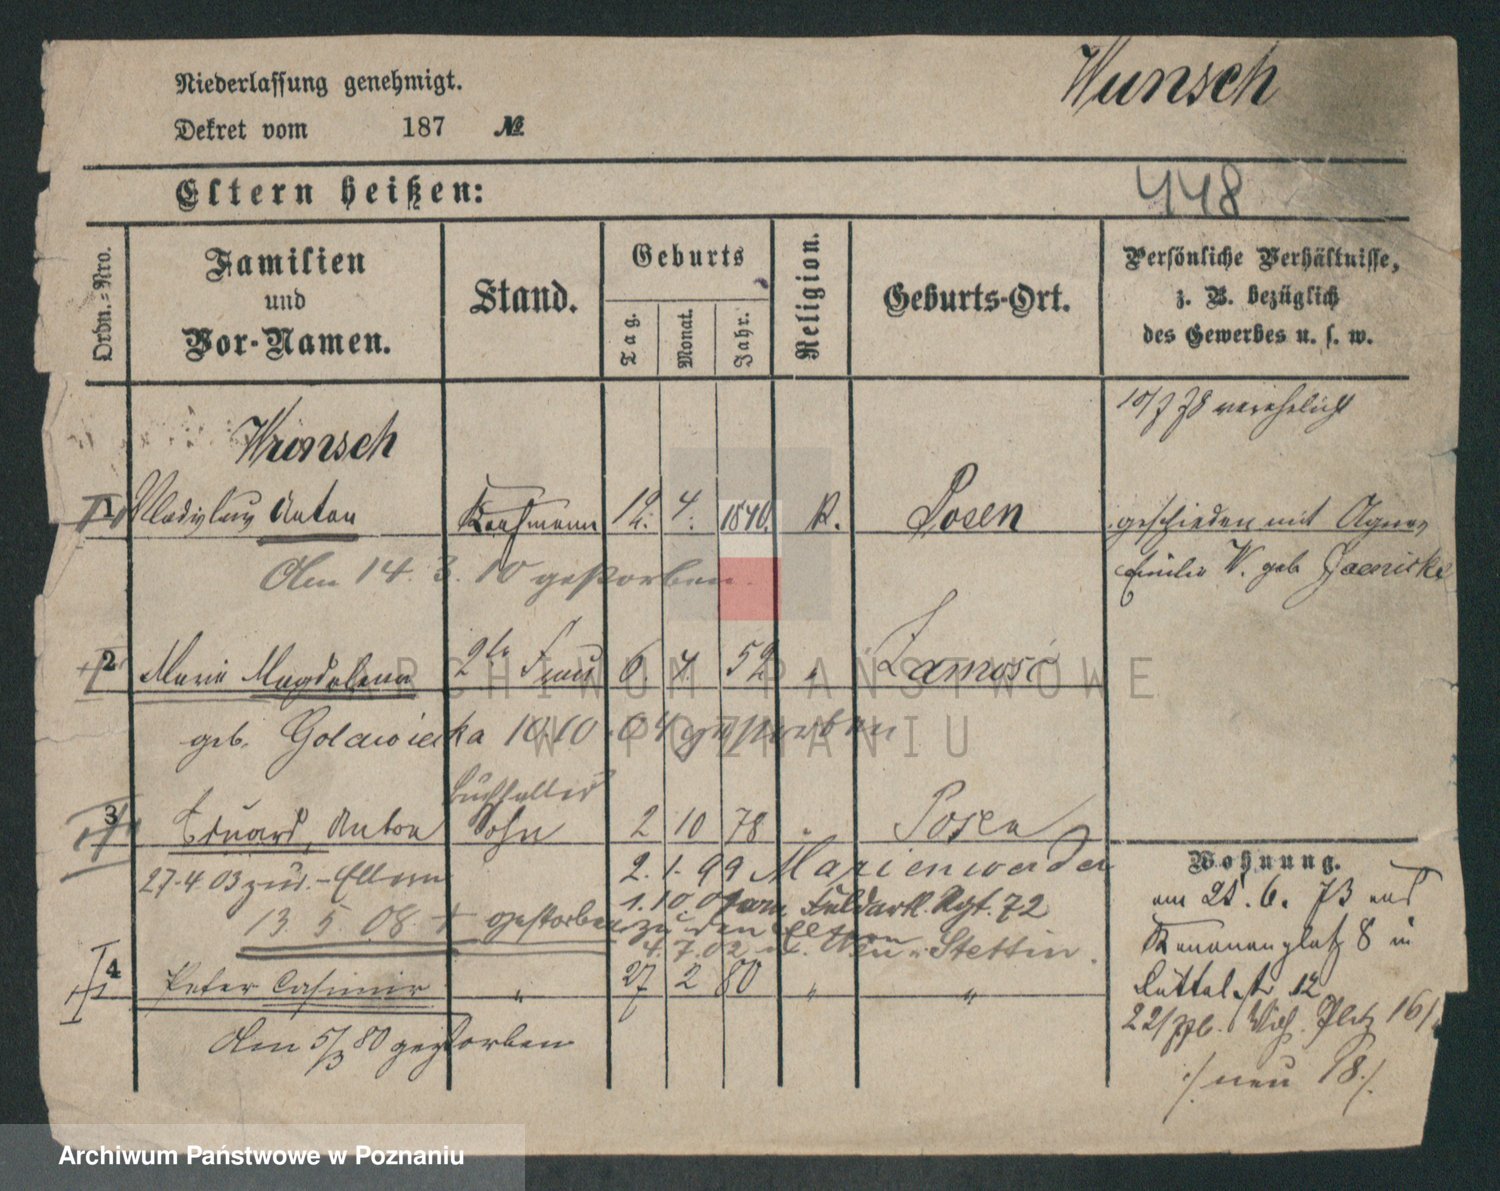 Niederlassung genehmigt.
Wunsch
Dekret vom 187 №
Eltern heißen:
448
Ordn.-Nro.
Familien
und
Vor-Namen.
Stand.
Geburts
Tag.
Monat.
Jahr.
Religion.
Geburts-Ort.
Persönliche Verhältnisse,
z. B. bezüglich
des Gewerbes u. s. w.
verehelicht
Wunsch
1 Anton Kaufmann 12. 4. 1840. K. Posen geschieden mit Agnes
Am 14. 3. 10 gestorben. Emilie W. geb Jaenicke
2 Marie Magdalena 2te Frau 6. 7. 52 " Zamość
geb. Golawiecka 10.10.04 gestorben
Buchhalter
3 Eduard, Anton Sohn 2 10 78 " Posen
Wohnung.
27.4.03 zu d. Eltern 2.1.99 Marienwerder
1.10.01 zum Feldartl. Rgt. 72
13. 5. 08. + gestorben zu den Eltern
4.7.02 Stettin.
4 Peter Casimir " 27 2 80 " "
Am 5/3 80 gestorben
am 25. 6. 73
8 in
12
22/ Wilh. Platz 16/
./ neu 18 /.
ARCHIWUM PAŃSTWOWE
W POZNANIU
Archiwum Państwowe w Poznaniu